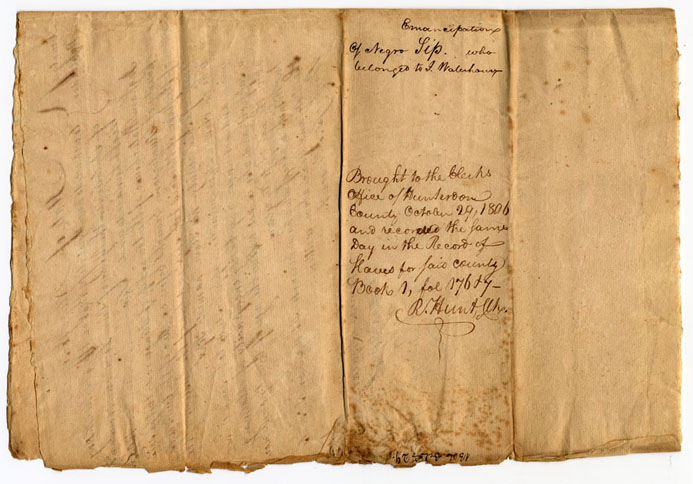 Emancipation
Of Negro Sip. who
belonged to I. Waterhouse
Brought to the Clerks
Office of Hunterdon
County October 29, 1806
and recorded the same
Day in the Record of
Slaves for said county
Book 1, fol 176
R. Hunt, Clk.